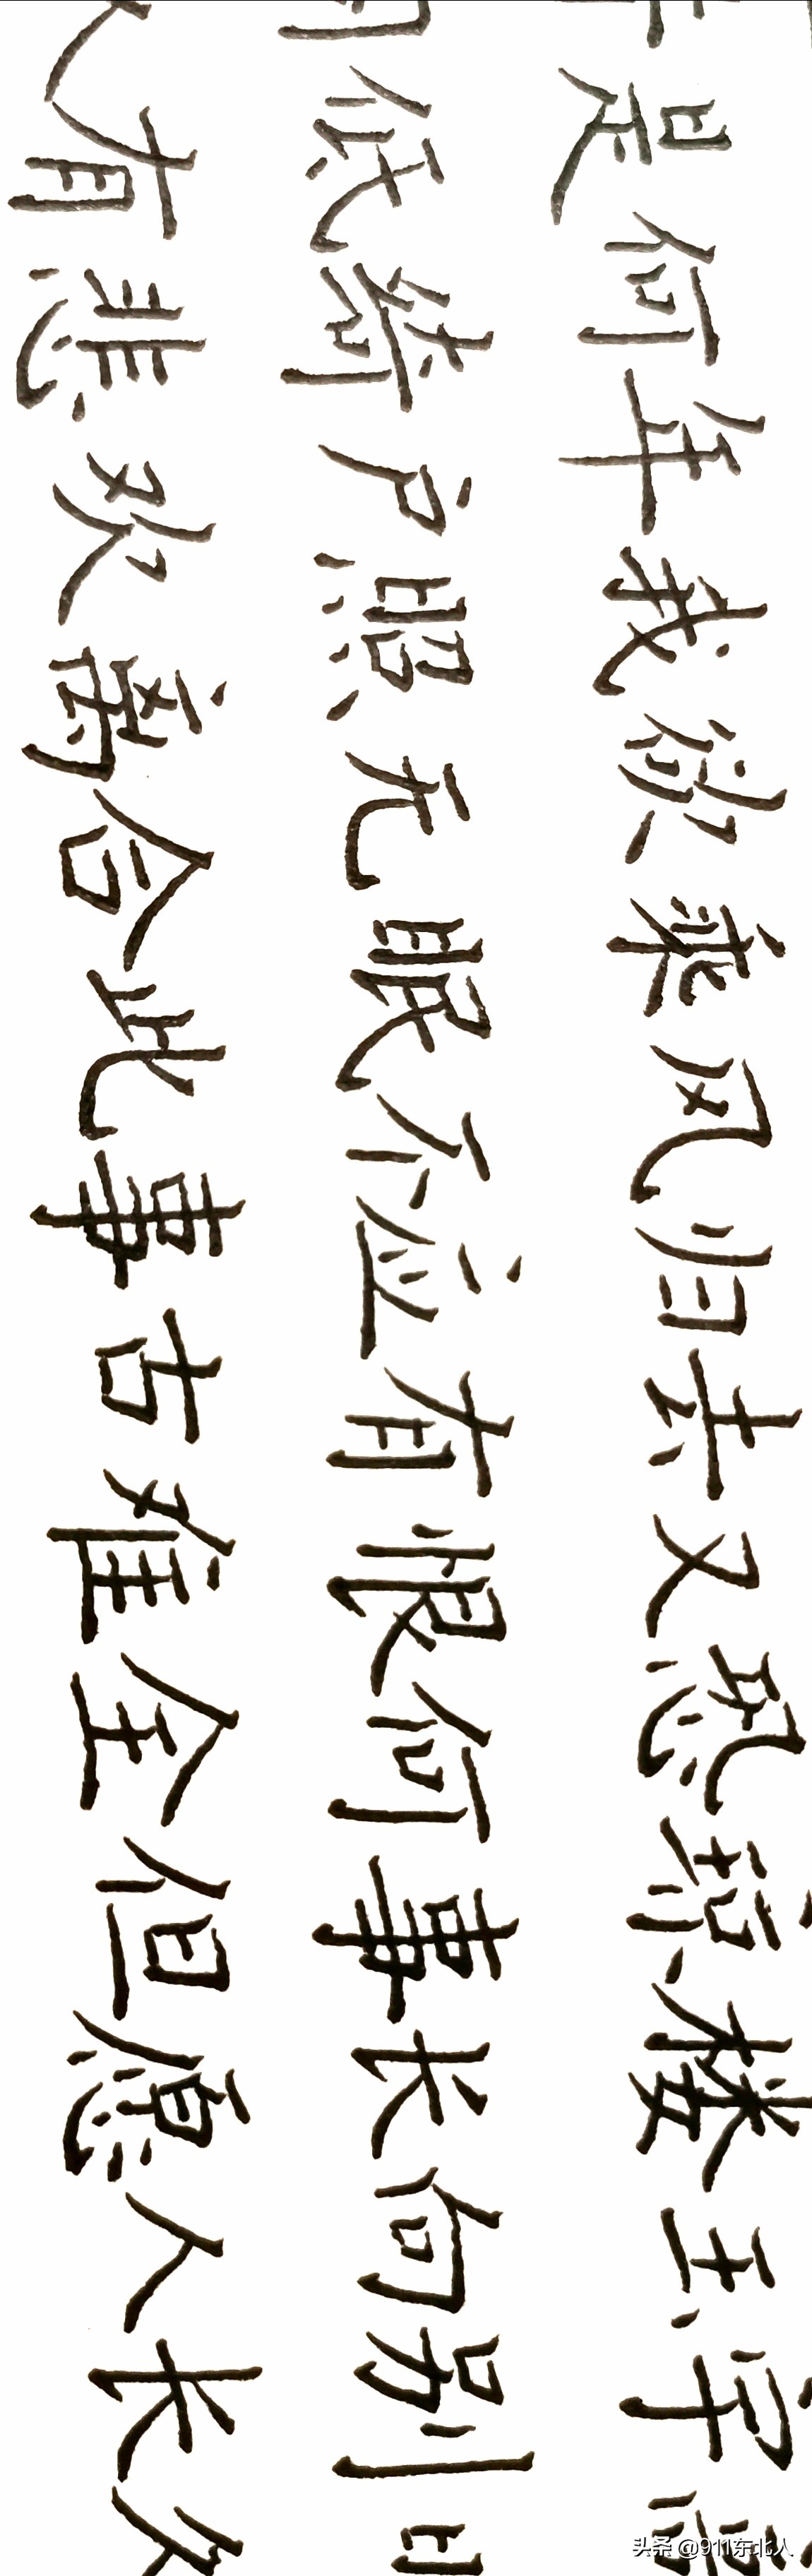 是何年我欲乘风归去又恐琼楼玉宇
低绮户照无眠不应有恨何事长向别
人有悲欢离合此事古难全但愿人长久
头条 @911东北人